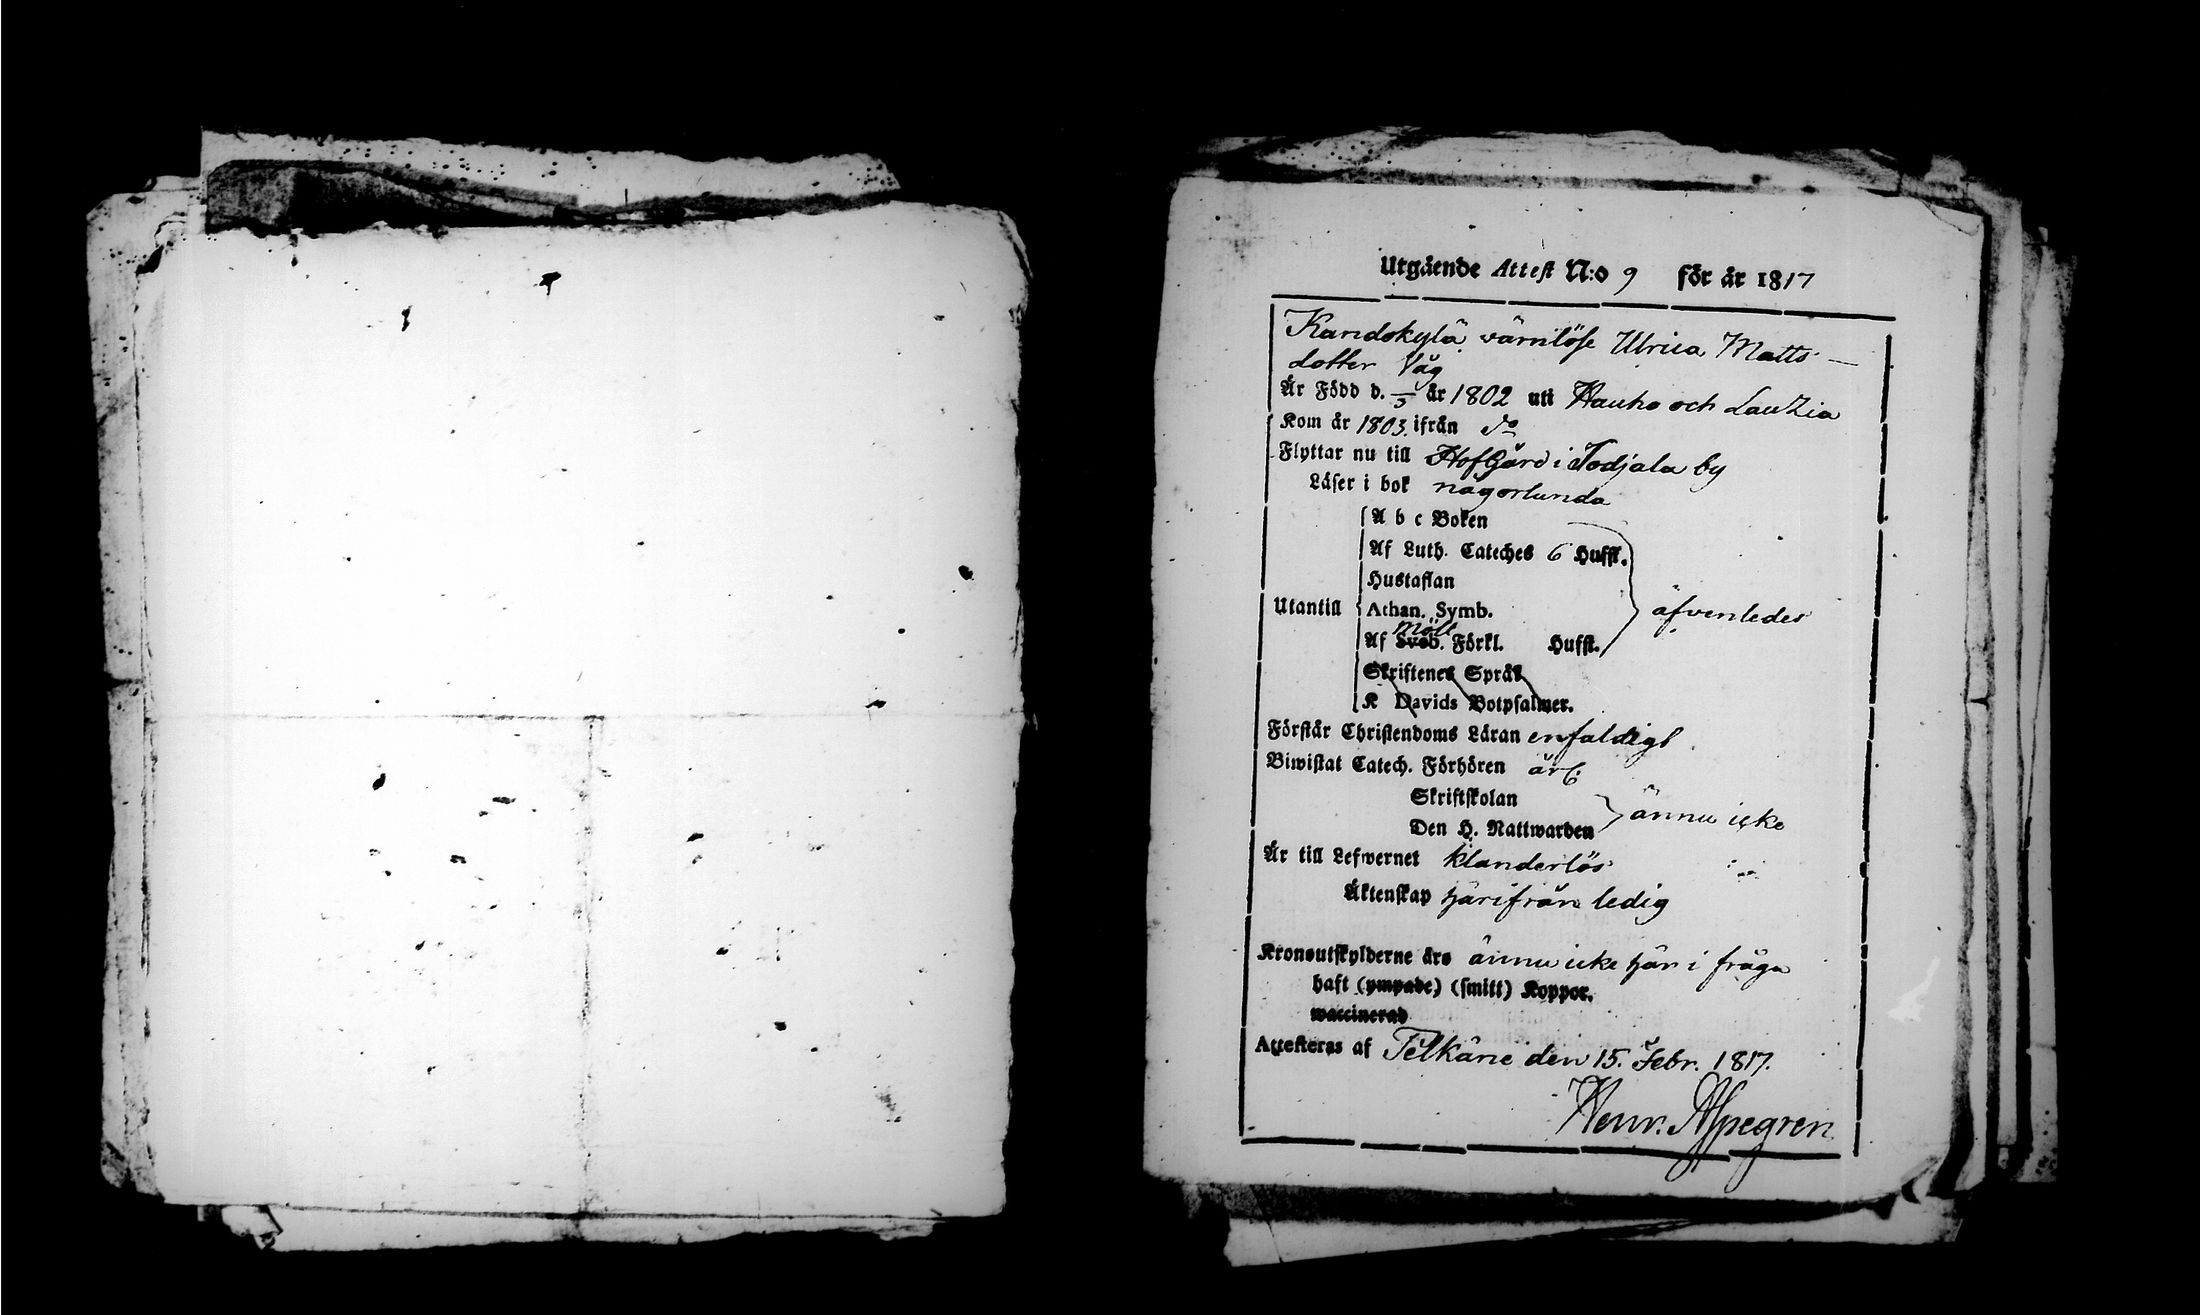 Utgående Attest N:o 9 för år 1817
Kandokylä värnlöse Ulrica Matts-
dotter Våg
Är Född d. — 5 år 1802 uti Hauho och Lautzia
Kom år 1803. ifrån do
Flyttar nu till Hofgård i Todjala by
Läser i bok någorlunda
A b c Boken
Af Luth. Cateches 6 Huffst.
Hustaflan
Utantill Athan. Symb. äfvenledes
Möll
Af Sveb. Förkl. Huffst.
Skriftenes Språk
K Davids Botpsalmer.
Förstår Christendoms Läran enfaldigt
Biwistat Catech. Förhören årl.
Skriftskolan
Den H. Nattwarden ännu icke
Är till Lefwernet klanderlös
Äktenskap härifrån ledig
Kronoutskylderne äro ännu icke här i fråga
haft (ympade) (smitt) Koppor.
waccinerad
Attesteras af Pelkäne den 15. Febr. 1817.
Henr. Alpegren